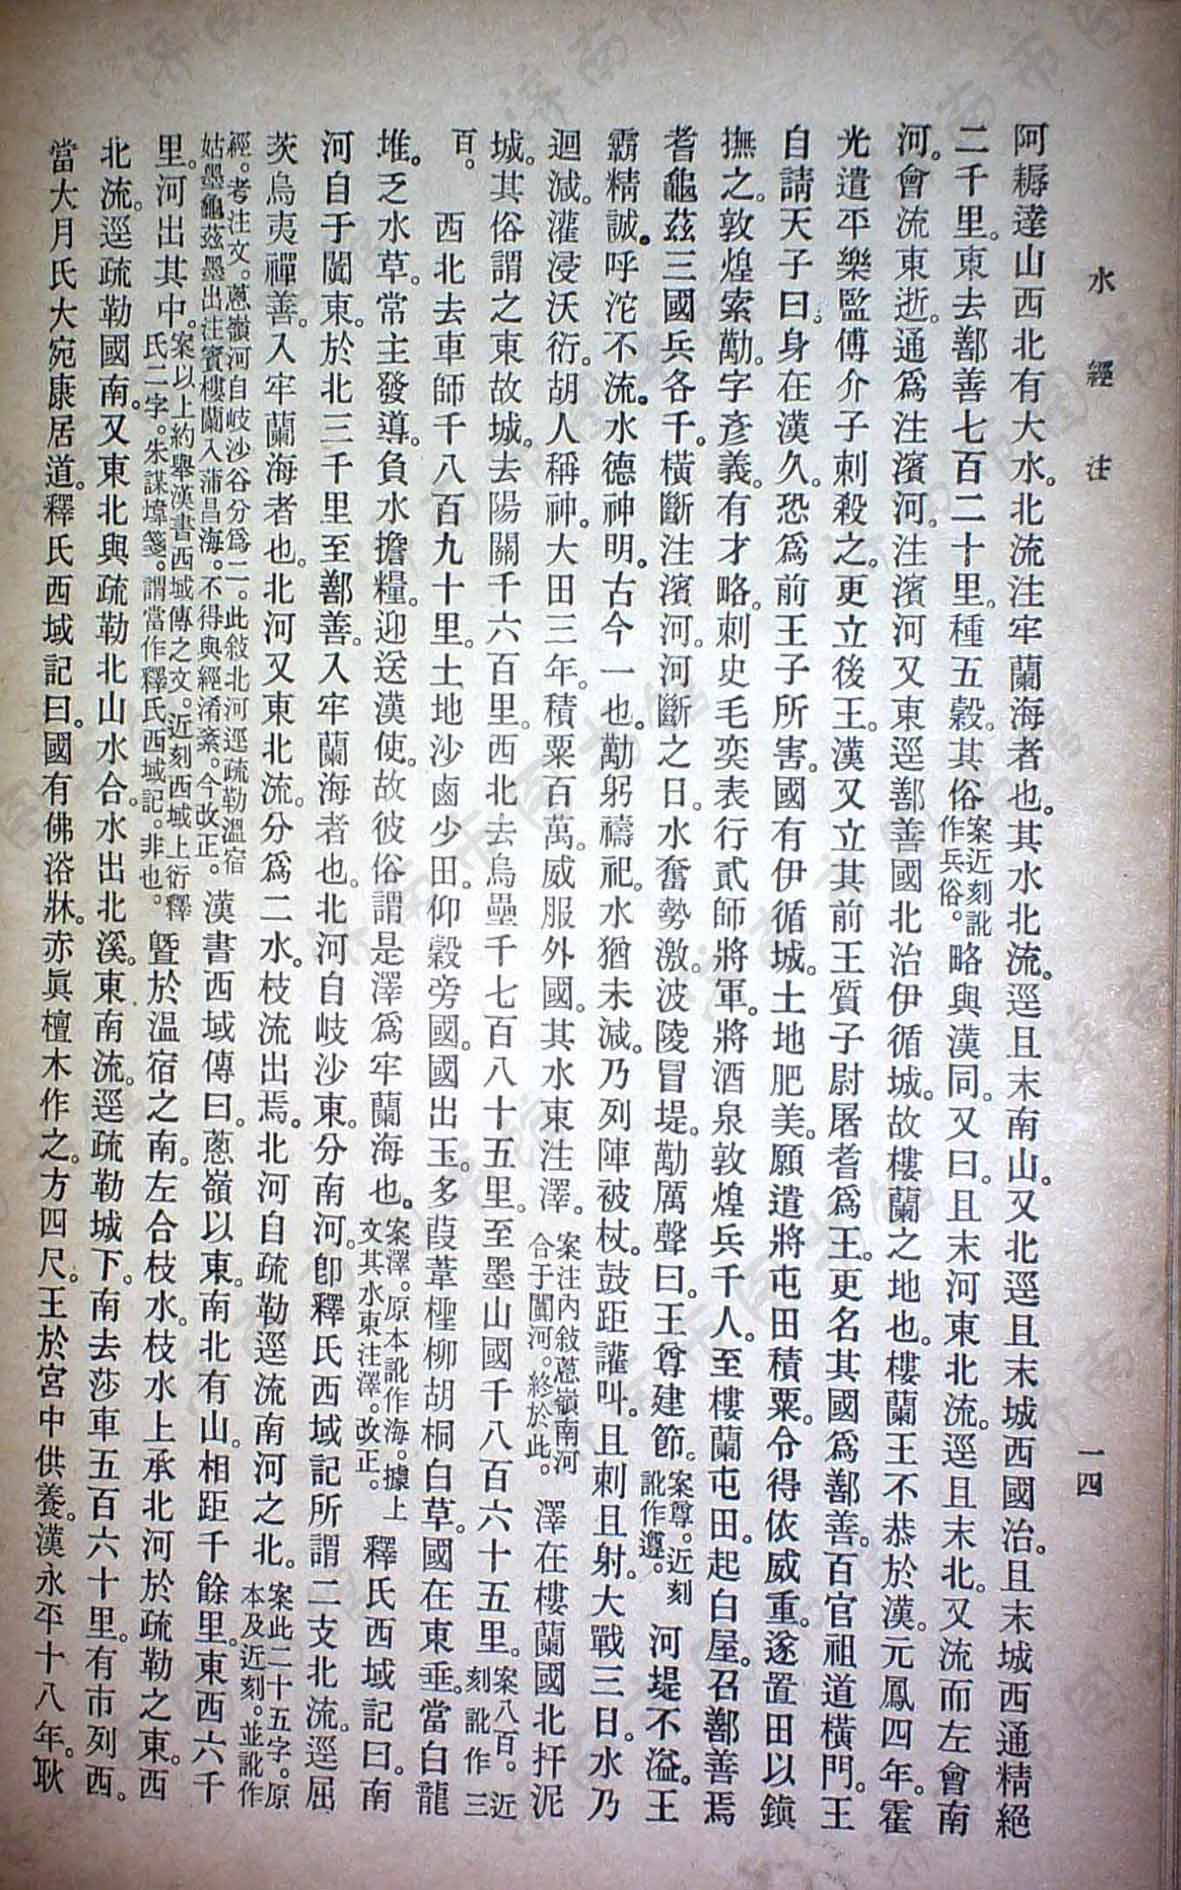 水經注
一四
阿耨達山西北有大水。北流注牢蘭海者也。其水北流。逕且末南山。又北逕且末城西國治。且末城西通精絕
二千里。東去鄯善七百二十里。種五穀。其俗案近刻訛作兵俗。略與漢同。又曰。且末河東北流。逕且末北。又流而左會南
河。會流東逝。通爲注濱河。注濱河又東逕鄯善國北治伊循城。故樓蘭之地也。樓蘭王不恭於漢。元鳳四年。霍
光遣平樂監傅介子刺殺之。更立後王。漢又立其前王質子尉屠耆爲王。更名其國爲鄯善。百官祖道橫門。王
自請天子曰。身在漢久。恐爲前王子所害。國有伊循城。土地肥美。願遣將屯田積粟。令得依威重。遂置田以鎭
撫之。敦煌索勱。字彥義。有才略。刺史毛奕表行貳師將軍。將酒泉敦煌兵千人。至樓蘭屯田。起白屋。召鄯善焉
耆龜茲三國兵各千。橫斷注濱河。河斷之日。水奮勢激。波陵冒堤。勱厲聲曰。王尊建節。案尊。近刻訛作遵。河堤不溢。王
霸精誠。呼沱不流。水德神明。古今一也。勱躬禱祀。水猶未減。乃列陣被杖。鼓距讙叫。且刺且射。大戰三日。水乃
迴減。灌浸沃衍。胡人稱神。大田三年。積粟百萬。威服外國。其水東注澤。案注内敘蔥嶺南河合于闐河。終於此。澤在樓蘭國北扞泥
城。其俗謂之東故城。去陽關千六百里。西北去烏壘千七百八十五里。至墨山國千八百六十五里。案八百。近刻訛作三
百。西北去車師千八百九十里。土地沙鹵少田。仰穀旁國。國出玉。多葭葦檉柳胡桐白草。國在東垂。當白龍
堆。乏水草。常主發導。負水擔糧。迎送漢使。故彼俗謂是澤爲牢蘭海也。案澤。原本訛作海。據上文其水東注澤。改正。釋氏西域記曰。南
河自于闐東。於北三千里至鄯善。入牢蘭海者也。北河自岐沙東。分南河。卽釋氏西域記所謂二支北流。逕屈
茨烏夷禪善。入牢蘭海者也。北河又東北流。分爲二水。枝流出焉。北河自疏勒逕流南河之北。案此二十五字。原本及近刻。並訛作
經。考注文。蔥嶺河自岐沙谷分爲二。此敘北河逕疏勒溫宿姑墨龜茲墨出注賓樓蘭入蒲昌海。不得與經淆紊。今改正。漢書西域傳曰。蔥嶺以東。南北有山。相距千餘里。東西六千
里。河出其中。案以上約舉漢書西域傳之文。近刻西域上衍釋氏二字。朱謀㙔箋。謂當作釋氏西域記。非也。曁於溫宿之南。左合枝水。枝水上承北河於疏勒之東。西
北流。逕疏勒國南。又東北與疏勒北山水合。水出北溪。東南流。逕疏勒城下。南去莎車五百六十里。有市列西。
當大月氏大宛康居道。釋氏西域記曰。國有佛浴牀。赤眞檀木作之。方四尺。王於宮中供養。漢永平十八年。耿